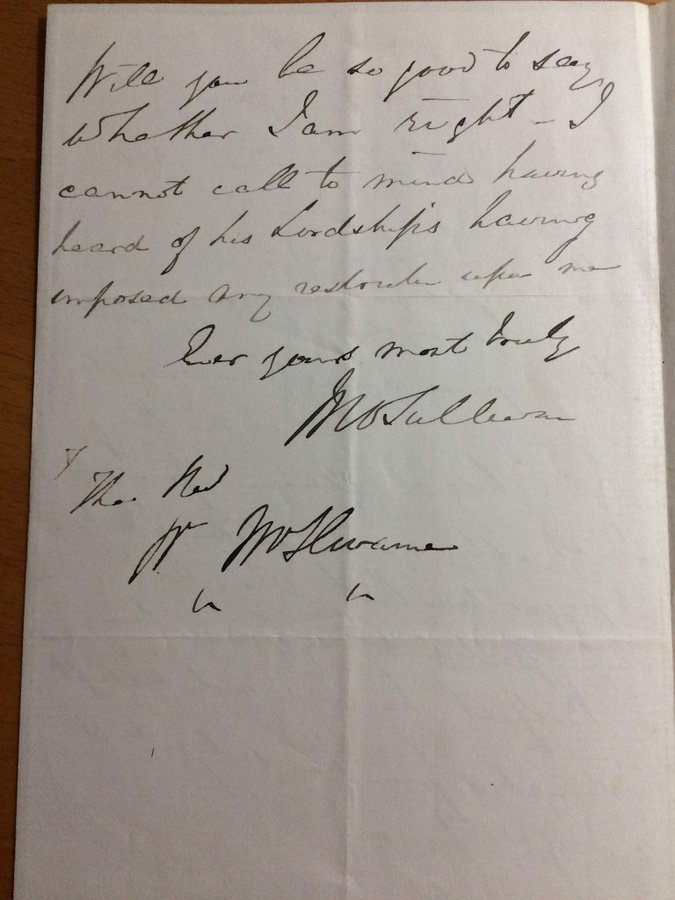 Will you be so good to say
whether I am right - I
cannot call to mind having
heard of his Lordships having
imposed any upon me
Ever yours most truly
The Rev